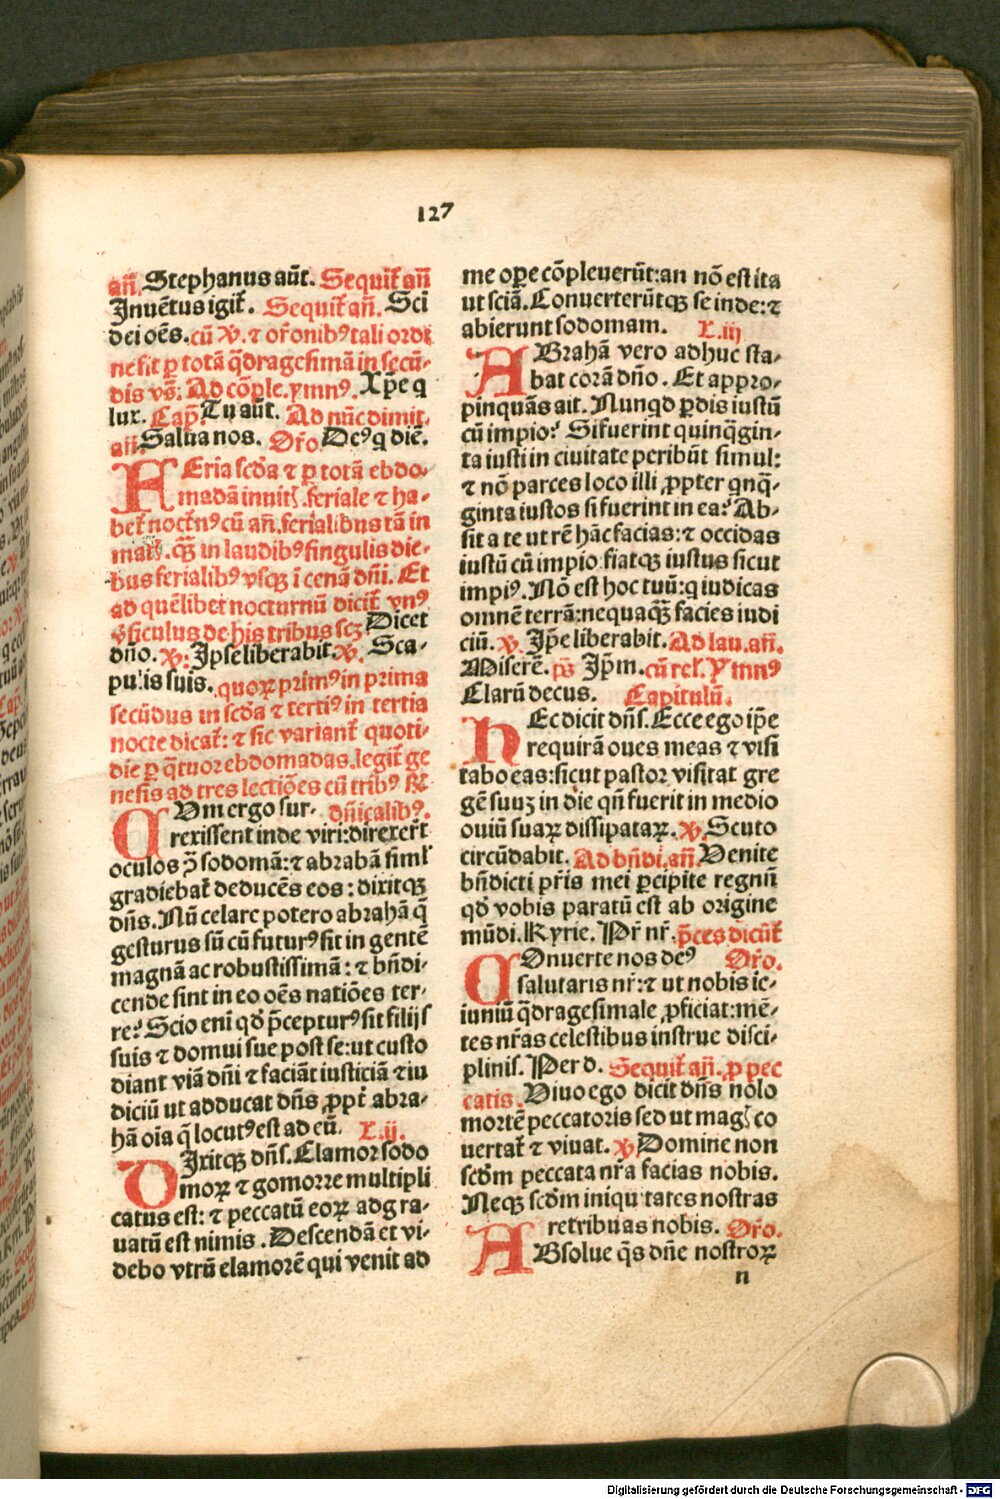 127
añ. Stephanus aūt. Sequit᷑ añ
Inuētus igit᷑. Sequit᷑ añ. Sci
dei oēs. cū ꝟ. ⁊ or̄onibꝰ tali ordi
ne sit ꝑ totā q̄dragesimā in secū-
dis vs̄. Ad cōple. ymnꝰ. Xp̄e q
lux. Cap̄. Tu aūt. Ad nūc dimit.
añ. Salua nos. Or̄o. Deꝰ q diē.
FEria scd̄a ⁊ ꝑ totā ebdo-
madā inuit᷑ feriale ⁊ ha-
bet᷑ noct᷑nꝰ cū añ. ferialibus tā in
mat᷑. qꝫ̄ in laudibꝰ singulis die-
bus ferialibꝰ vsqꝫ ī cenā dn̄i. Et
ad quēlibet nocturnū dicit᷑ vnꝰ
ꝟsiculus de his tribus scꝫ Dicet
dn̄o. ꝟ. Ipse liberabit. ꝟ. Sca-
pulis suis. quoꝝ primꝰ in prima
secūdus in scd̄a ⁊ tertiꝰ in tertia
nocte dicat᷑: ⁊ sic variant᷑ quoti-
die ꝑ q̄tuor ebdomadas. legit᷑ ge
nesis ad tres lectiōes cū tribꝰ ℟
CVm ergo sur- dn̄icalibꝰ.
rexissent inde viri: direxer̄t
oculos ꝯ̄ sodomā: ⁊ abrahā siml᷑
gradiebat᷑ deducēs eos: dixitqꝫ
dn̄s. Nū celare potero abrahā q̄
gesturus sū cū futurꝰ sit in gentē
magnā ac robustissimā: ⁊ bn̄di-
cende sint in eo oēs natiōes ter-
re? Scio eni ꝙ p̄cepturꝰ sit filijs
suis ⁊ domui sue post se: ut custo
diant viā dn̄i ⁊ faciāt iusticiā ⁊ iu
diciū ut adducat dn̄s ꝓpt᷑ abra-
hā oīa q̄ locutꝰ est ad eū. L. ij.
DIxitqꝫ dn̄s. Clamor sodo
moꝝ ⁊ gomorre multipli
catus est: ⁊ peccatū eoꝝ adgra-
uatū est nimis. Descendā et vi-
debo vtrū clamorē qui venit ad
me oꝑe cōpleuerūt: an nō est ita
ut sciā. Conuerterūtqꝫ se inde: ⁊
abierunt sodomam. L. iij
ABrahā vero adhuc sta-
bat corā dn̄o. Et appro-
pinquās ait. Nunqd ꝑdis iustū
cū impio? Si fuerint quinq̄gin-
ta iusti in ciuitate peribūt simul:
⁊ nō parces loco illi ꝓpter qnq̄-
ginta iustos si fuerint in ea? Ab-
sit a te ut rē hāc facias: ⁊ occidas
iustū cū impio fiatqꝫ iustus sicut
impiꝰ. Nō est hoc tuū: q iudicas
omnē terrā: nequaqꝫ̄ facies iudi
ciū. ꝟ. Ip̄e liberabit. Ad lau. añ.
Miserē. ps̄ Ip̄m. cū rel'. Ymnꝰ
Clarū decus. Capitulū.
HEc dicit dn̄s. Ecce ego ip̄e
requirā oues meas ⁊ visi
tabo eas: sicut pastor visitat gre
gē suuꝫ in die qn̄ fuerit in medio
ouiū suaꝝ dissipataꝝ. ꝟ. Scuto
circūdabit. Ad bn̄di. añ. Venite
bn̄dicti pr̄is mei ꝑcipite regnū
qd̄ vobis paratū est ab origine
mūdi. Kyrie. Pr̄ nr̄. p̄ces dicūt᷑
COnuerte nos deꝰ Or̄o.
salutaris nr̄: ⁊ ut nobis ie-
iuniū q̄dragesimale ꝓficiat: mē-
tes nr̄as celestibus instrue disci-
plinis. Per d. Sequit᷑ añ. ꝓ pec
catis. Viuo ego dicit dn̄s nolo
mortē peccatoris sed ut mag᷑ co
uertat᷑ ⁊ viuat. ꝟ Domine non
scd̄m peccata nr̄a facias nobis.
Neqꝫ scd̄m iniquitates nostras
retribuas nobis. Or̄o.
ABsolue qs̄ dn̄e nostroꝝ
n
Digitalisierung gefördert durch die Deutsche Forschungsgemeinschaft - DFG